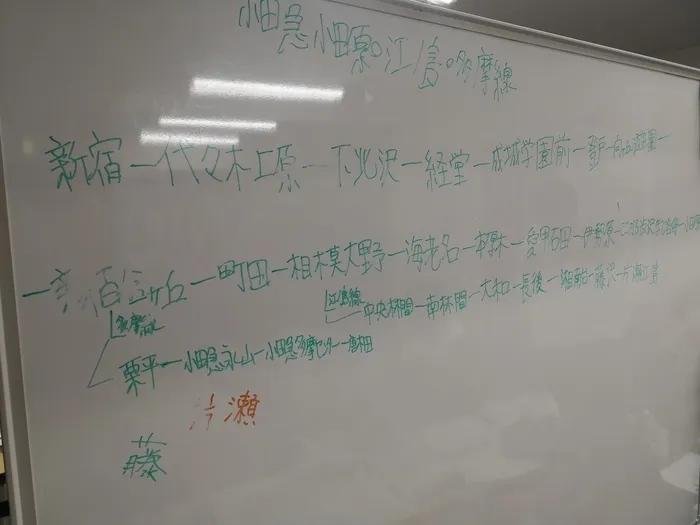 小田急小田原・江ノ島・多摩線
新宿ー代々木上原ー下北沢ー経堂ー成城学園前ー登戸ー向ヶ丘遊園ー
ー新百合ヶ丘ー町田ー相模大野ー海老名ー本厚木ー愛甲石田ー伊勢原ー
多摩線
江島線
中央林間ー南林間ー大和ー長後ー湘南台ー藤沢ー片瀬江ノ島
栗平ー小田急永山ー小田急多摩センターー唐木田
片瀬
藤